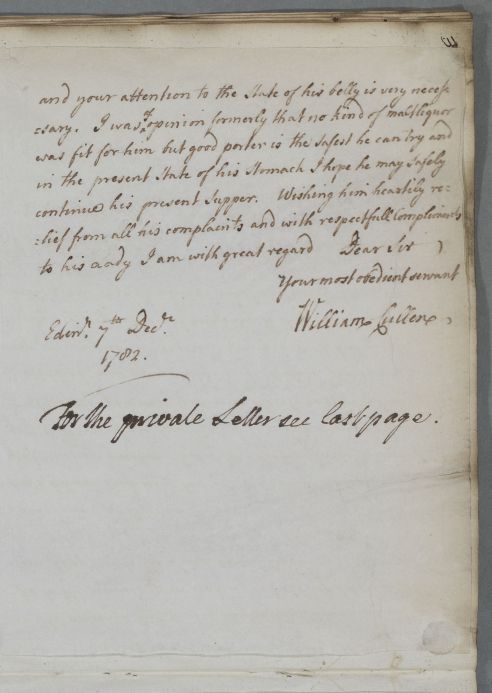 3
and your attention to the State of his belly is very necess
essary. I was of opinion formerly that no kind of malt liquor
was fit for him but good porter is the safest he can try and
in the present State of his Stomach I hope he may safely
continue his present Supper. Wishing him heartily re=
=lief from all his complaints and with respectfull Compliments
to his Lady I am with great regard Dear Sir
Your most obedient servant
William Cullen
Edinr. 7th Decr.
1782.
For the private Letter see last page.